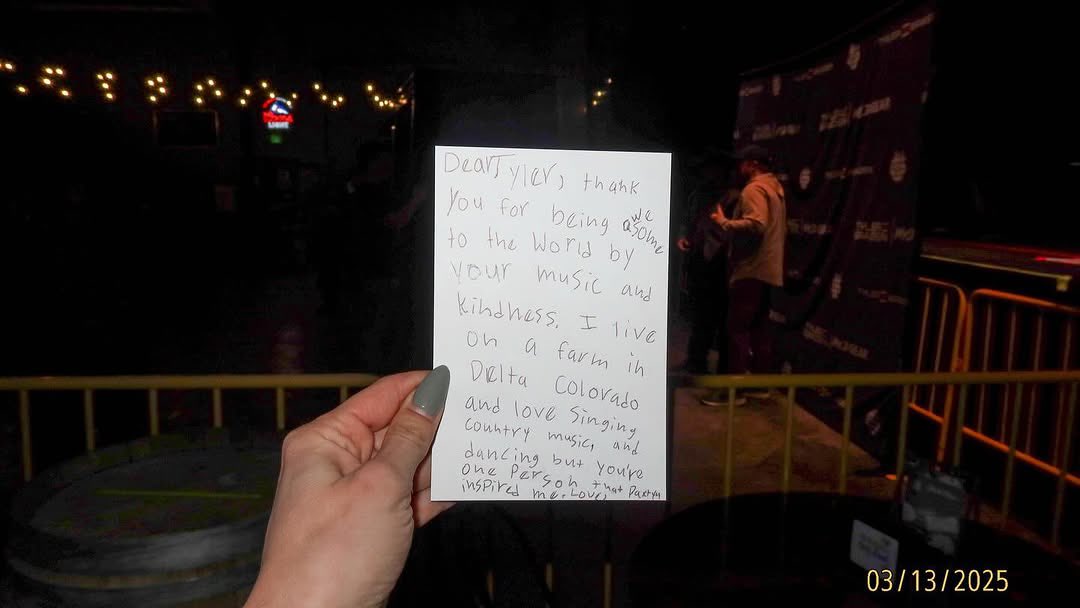 Dear Tyler, thank
you for being awesome
to the World by
your music and
kindness. I live
on a farm in
Delta Colorado
and love singing
country music, and
dancing but you're
one person that
inspired me. Love,
LIGHT
03/13/2025